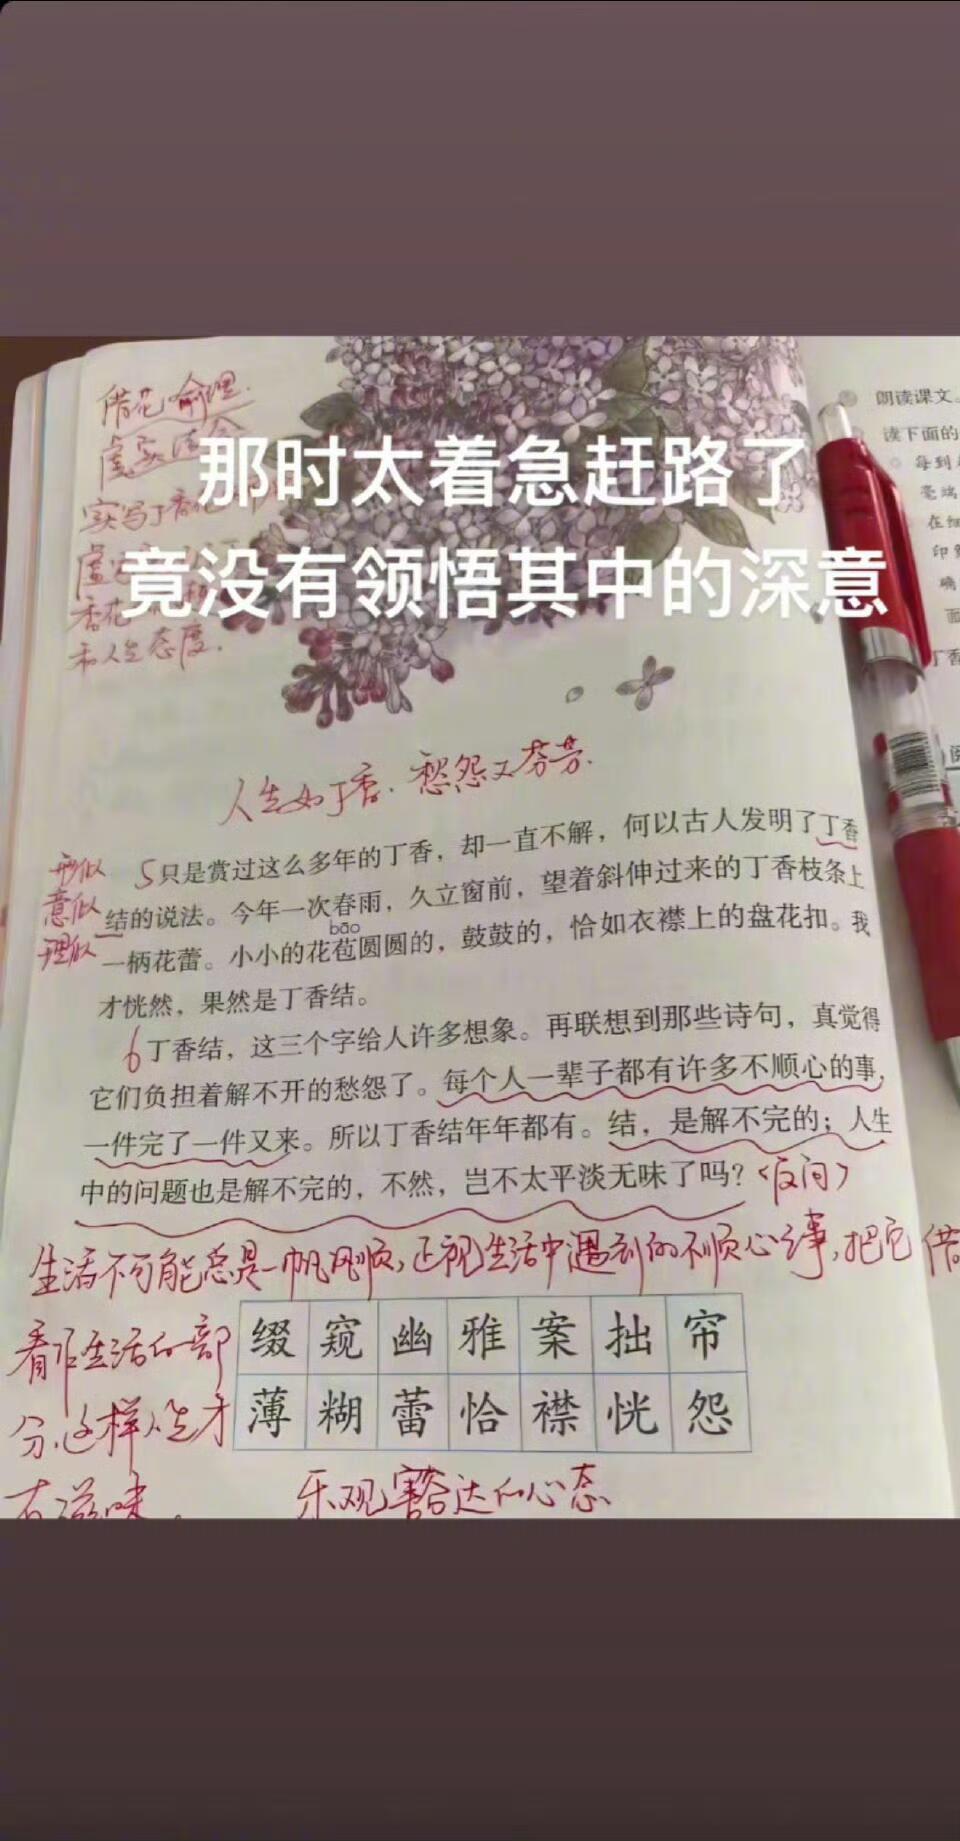 借花喻理.
虚实结合
那时太着急赶路了
实写丁香花
竟没有领悟其中的深意
香花
和人生态度.
人生如丁香.愁怨又芬芳.
形似
意似
理似
5只是赏过这么多年的丁香，却一直不解，何以古人发明了丁香
结的说法。今年一次春雨，久立窗前，望着斜伸过来的丁香枝条上
bāo
一柄花蕾。小小的花苞圆圆的，鼓鼓的，恰如衣襟上的盘花扣。我
才恍然，果然是丁香结。
6丁香结，这三个字给人许多想象。再联想到那些诗句，真觉得
它们负担着解不开的愁怨了。每个人一辈子都有许多不顺心的事，
一件完了一件又来。所以丁香结年年都有。结，是解不完的；人生
中的问题也是解不完的，不然，岂不太平淡无味了吗？（反问）
生活不可能总是一帆风顺,正视生活中遇到的不顺心之事,把它
看作生活的一部
分,这样人生才
有滋味.
缀窥幽雅案拙帘
薄糊蕾恰襟恍怨
乐观豁达的心态
借
朗读课文。
读下面的
每到
毫端
在细
印象
确
面
丁香